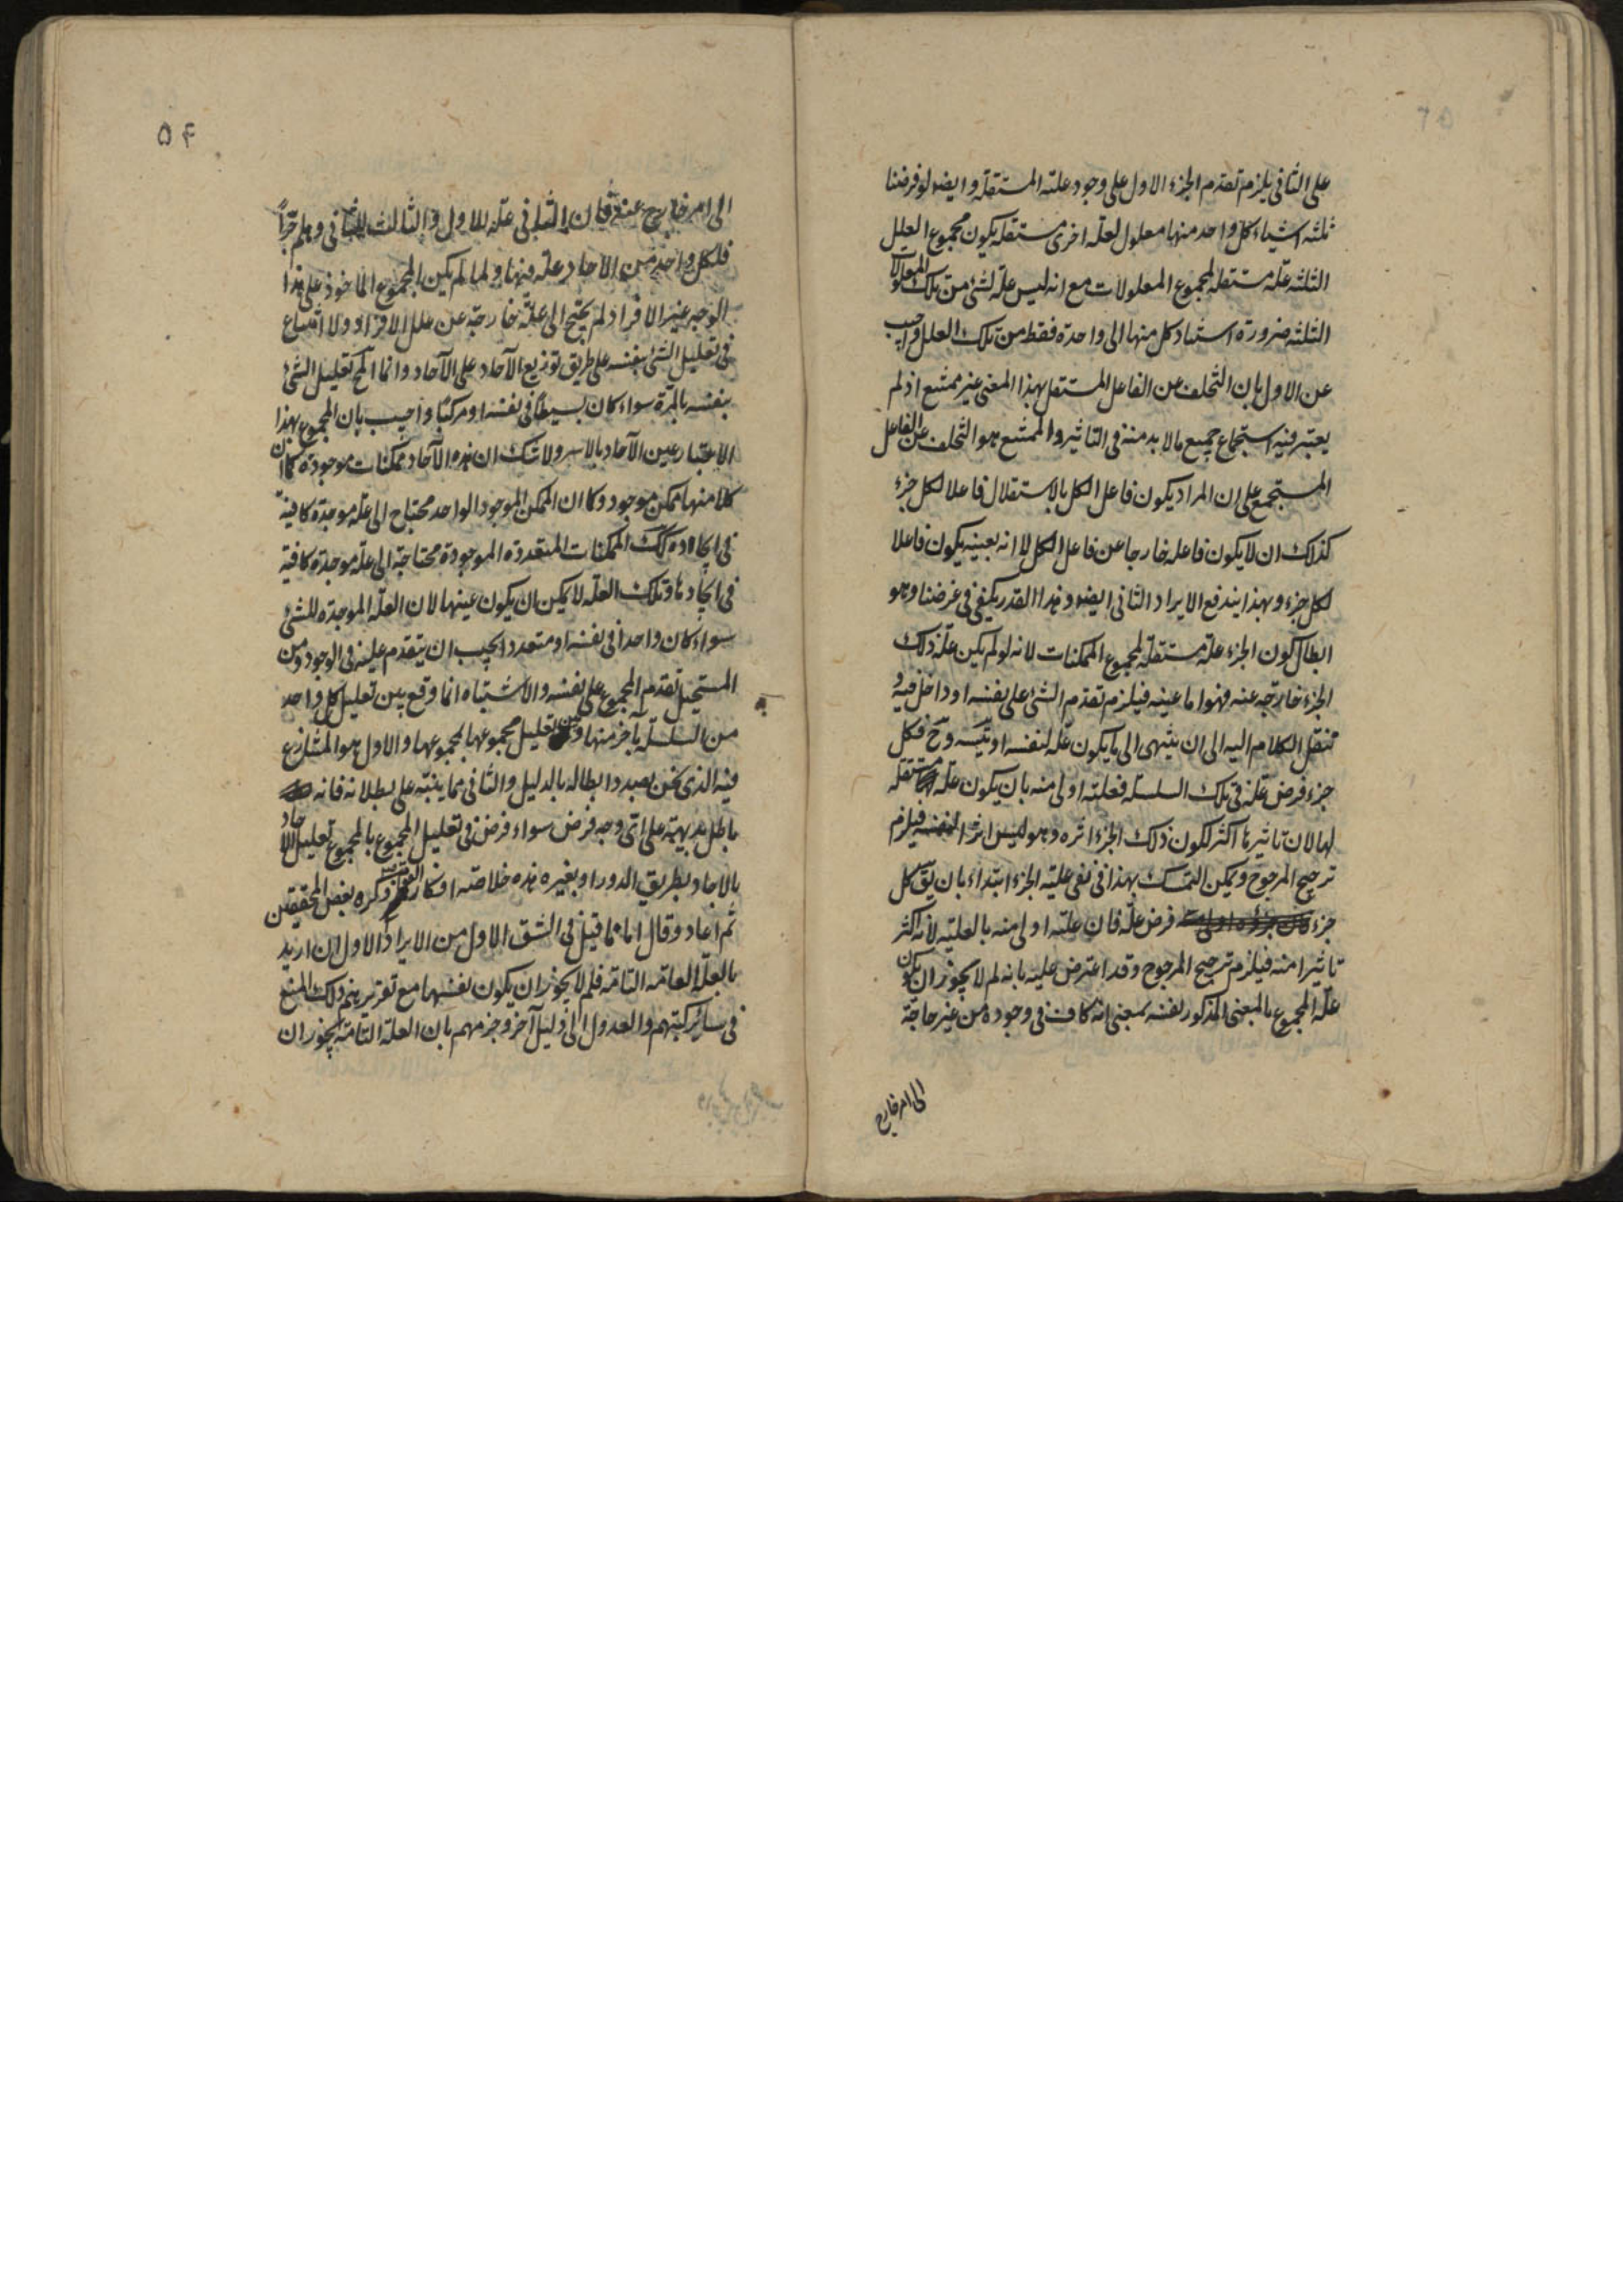 على الثانى يلزم تقدم الجزء الاول على وجود علته المستقلة وايضه لو فرضنا
ثلثه اشياء كل واحد منها معلول لعلة اخرى مستقله يكون مجموع العلل
الثلثه علة مستقله لمجموع المعلولات مع انه ليس علة لشئ من تلك المعلولات
الثلثه ضرورة استناد كل منها الى واحدة فقط من تلك العلل واجيب
عن الاول بان التخلف عن الفاعل المستقل بهذا المعنى غير ممتنع اذ لم
يعتبر فيه استجماع جميع ما لا بد منه فى التاثير والممتنع هو التخلف عن الفاعل
المستجمع على ان المراد يكون فاعل الكل بالاستقلال فاعلا لكل جزء
كذلك ان لا يكون فاعله خارجا عن فاعل الكل لا انه بعينه يكون فاعلا
لكل جزء وبهذا يندفع الايراد الثانى ايضه وهذا القدر يكفى فى غرضنا وهو
ابطال كون الجزء علة مستقلة لمجموع الممكنات لانه لو لم يكن علة ذلك
الجزء خارجة عنه فهو اما عينه فيلزم تقدم الشئ على نفسه او داخل فيه و
ننقل الكلام اليه الى ان ينتهى الى ما يكون علة لنفسه او يتسه وح فكل
جزء فرض علة فى تلك السلسلة فعلته اولى منه بان يكون علة مستقله
لها لان تاثيرها اكثر لكون ذلك الجزء اثره وهو ليس اثرا لنفسه فيلزم
ترجيح المرجوح ويمكن التمسك بهذا فى نفى علية الجزء ابتداء بان يق كل
جزء فرض علة فان علته اولى منه بالعلية لانه اكثر
تاثيرا منه فيلزم ترجيح المرجوح وقد اعترض عليه بانه لم لا يجوز ان يكون
علة المجموع بالمعنى المذكور لنفسه بمعنى انه كاف فى وجوده من غير حاجة
الى امر خارج
٥٤
الى امر خارج عنه فان الثانى علة للاول والثالث للثانى وهلم جرا
فلكل واحد من الآحاد علة منها ولما لم يكن المجموع الماخوذ على هذا
الوجه غير الافراد لم يحتج الى علة خارجة عن علل الافراد ولا امتناع
فى تعليل الشئ بنفسه على طريق توزيع الآحاد على الآحاد وانما المح تعليل الشئ
بنفسه بالمرة سواء كان بسيطا فى نفسه او مركبا واجيب بان المجموع بهذا
الاعتبار عين الآحاد بالاسر ولا شك ان هذه الآحاد ممكنات موجودة كما ان
كلا منها ممكن موجود وكما ان الممكن الموجود الواحد محتاج الى علة موجدة كافية
فى ايجاده كك الممكنات المتعددة الموجودة محتاجة الى علة موجدة كافية
فى ايجادها وتلك العلة لا يمكن ان يكون عينها لان العلة الموجدة للشئ
سواء كان واحدا فى نفسه او متعددا يجب ان يتقدم عليه فى الوجود ومن
المستحيل تقدم المجموع على نفسه والاشتباه انما وقع بين تعليل كل واحد
من السلسلة بآخر منها وبين تعليل مجموعها لمجموعها والاول هو المتنازع
فيه الذى نحن بصدد ابطاله بالدليل والثانى مما ينبه على بطلانه فانه
باطل بديهية على اى وجه فرض سواء فرض فى تعليل المجموع بالمجموع تعليل الآحاد
بالآحاد بطريق الدور او بغيره هذه خلاصه افكار القوم ذكره بعض المحققين
ثم اعاد وقال اما ما قيل فى الشق الاول من الايراد الاول ان اريد
بالعلة العامه التامة فلم لا يجوز ان يكون نفسها مع تقريرهم ذلك المنع
فى سائر كتبهم والعدول الى دليل آخر وجزمهم بان العلة التامة يجوز ان